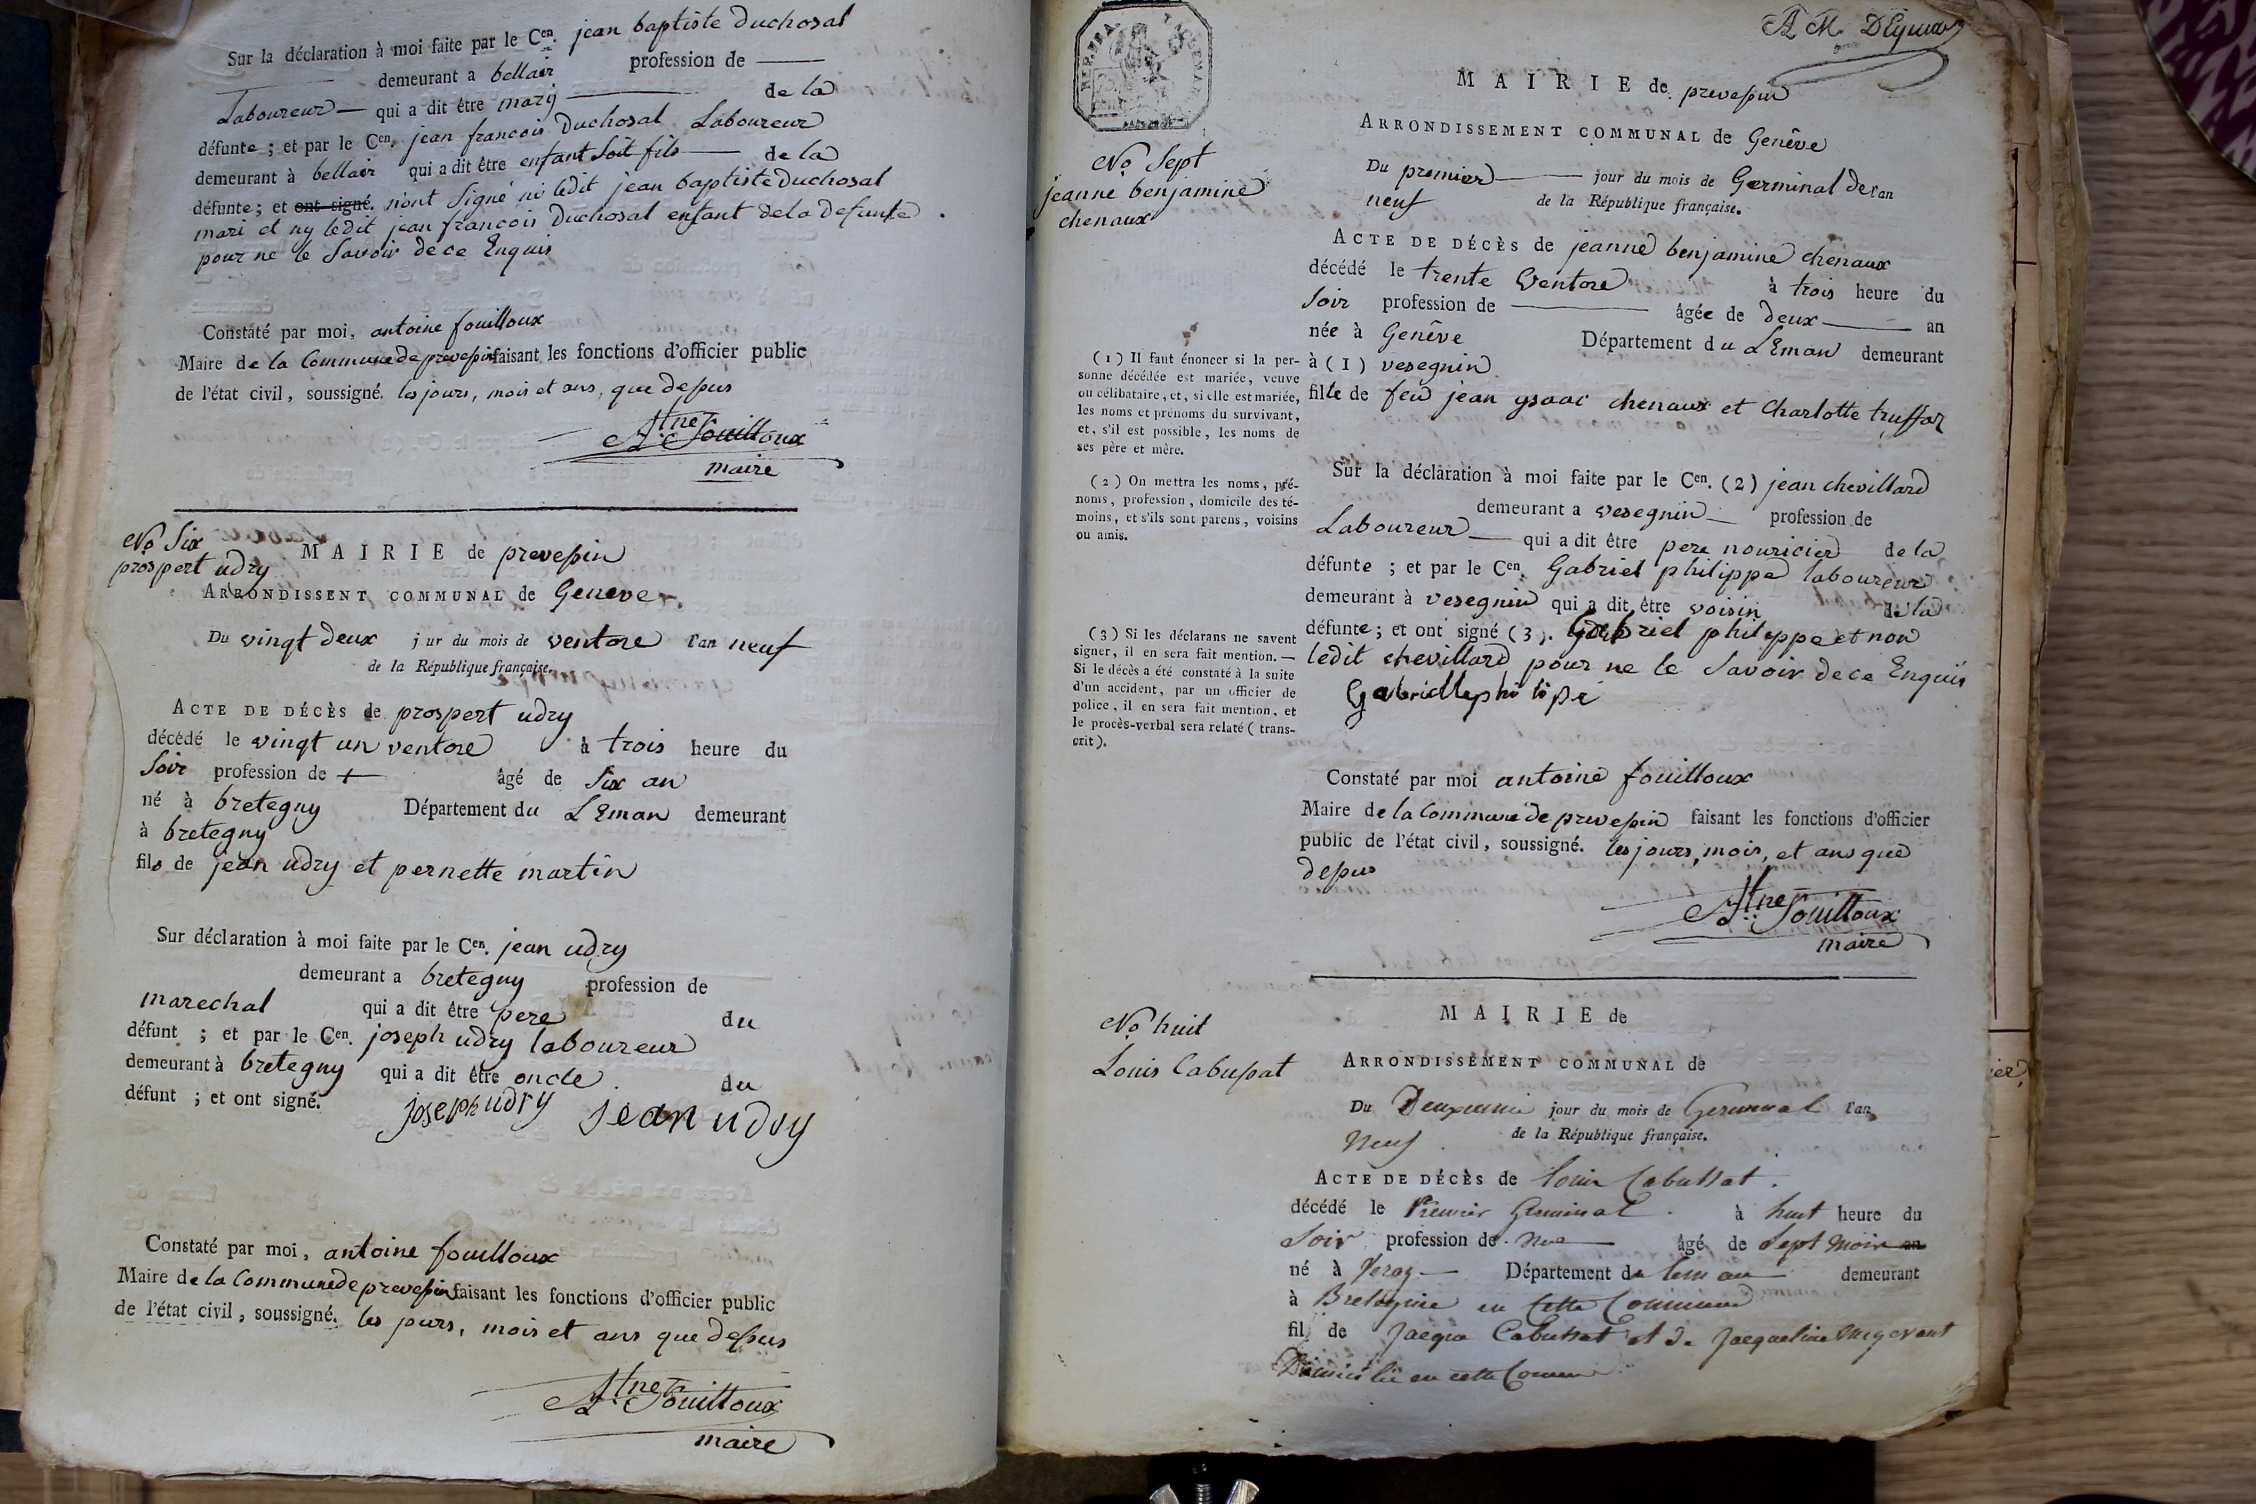 Sur la déclaration à moi faite par le Cen. jean baptiste Duchosal
demeurant a bellair profession de
Laboureur qui a dit être mary de la
défunte ; et par le Cen. jean francois Duchosal Laboureur
demeurant à bellair qui a dit être enfant soit fils de la
défunte ; et ont signé. n'ont signé ni ledit jean baptiste Duchosal
mari et ny ledit jean francois Duchosal enfant dela defunte.
pour ne le savoir dece Enquis
Constaté par moi, antoine fouilloux
Maire de la Commune de prevessin faisant les fonctions d'officier public
de l'état civil, soussigné. les jours, mois et ans, que dessus
Atne fouilloux
maire
No Six
prospert udry
MAIRIE de prevessin
ARRONDISSENT COMMUNAL de Geneve
Du vingt deux j ur du mois de ventose l'an neuf
de la République française.
ACTE DE DÉCÈS de prospert udry
décédé le vingt un ventose à trois heure du
soir profession de
âgé de six an
né à bretegny Département du LEman demeurant
à bretegny
fils de jean udry et pernette martin
Sur déclaration à moi faite par le Cen. jean udry
demeurant a bretegny profession de
marechal qui a dit être pere du
défunt ; et par le Cen. joseph udry laboureur
demeurant à bretegny qui a dit être oncle du
défunt ; et ont signé.
joseph udry jean udry
Constaté par moi, antoine fouilloux
Maire de la Commune de prevessin faisant les fonctions d'officier public
de l'état civil, soussigné. les jours, mois et ans que dessus
Atne fouilloux
maire
A M.
MAIRIE de prevessin
ARRONDISSEMENT COMMUNAL de Genêve
No Sept
jeanne benjamine
chenaux
Du premier jour du mois de Germinal de l'an
neuf de la République française.
ACTE DE DÉCÈS de jeanne benjamine chenaux
décédé le trente Ventose à trois heure du
soir profession de âgée de deux an
née à Genêve Département du LEman demeurant
à (1) vesegnin
fille de feu jean ysaac chenaux et Charlotte truffot
(1) Il faut énoncer si la per-
sonne décédée est mariée, veuve
ou célibataire, et, si elle est mariée,
les noms et prénoms du survivant,
et, s'il est possible, les noms de
ses père et mère.
(2) On mettra les noms, pré-
noms, profession, domicile des té-
moins, et s'ils sont parens, voisins
ou amis.
(3) Si les déclarans ne savent
signer, il en sera fait mention. —
Si le décès a été constaté à la suite
d'un accident, par un officier de
police, il en sera fait mention, et
le procès-verbal sera relaté ( trans-
crit ).
Sur la déclaration à moi faite par le Cen. (2) jean chevillard
demeurant a vesegnin profession de
Laboureur qui a dit être pere nouricier de la
défunte ; et par le Cen. Gabriel philippe laboureur
demeurant à vesegnin qui a dit être voisin de la
défunte ; et ont signé (3). Gabriel philippe et non
ledit chevillard pour ne le savoir dece Enquis
Gabriellephilipe
Constaté par moi antoine fouilloux
Maire de la Commune de prevessin faisant les fonctions d'officier
public de l'état civil, soussigné. les jours, mois, et ans que
dessus
Atne fouilloux
maire
No huit
Louis Cabussat
MAIRIE de
ARRONDISSEMENT COMMUNAL de
Du Deuxieme jour du mois de Germinal l'an
Neuf de la République française.
ACTE DE DÉCÈS de louis Cabussat.
décédé le Premier Germinal à huit heure du
soir profession de âgé de sept mois an
né à Département du leman demeurant
à Bretegnie en cette Commune
fils de Jacque Cabussat et de Jacqueline
Domicilié en cette Commune